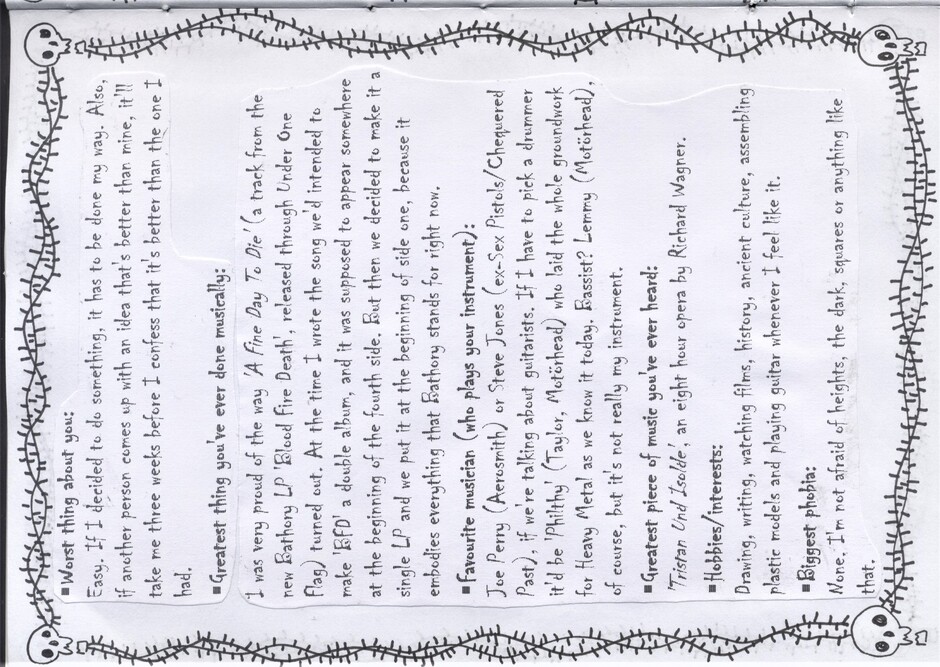 ▪Worst thing about you:
Easy. If I decided to do something, it has to be done my way. Also,
if another person comes up with an idea that's better than mine, it'll
take me three weeks before I confess that it's better than the one I
had.
▪Greatest thing you've ever done musically:
I was very proud of the way 'A Fine Day To Die' (a track from the
new Bathory LP 'Blood Fire Death', released through Under One
Flag) turned out. At the time I wrote the song we'd intended to
make 'BFD' a double album, and it was supposed to appear somewhere
at the beginning of the fourth side. But then we decided to make it a
single LP and we put it at the beginning of side one, because it
embodies everything that Bathory stands for right now.
▪Favourite musician (who plays your instrument):
Joe Perry (Aerosmith) or Steve Jones (ex-Sex Pistols/Chequered
Past), if we're talking about guitarists. If I have to pick a drummer
it'd be 'Philthy' (Taylor, Motörhead) who laid the whole groundwork
for Heavy Metal as we know it today. Bassist? Lemmy (Motörhead),
of course, but it's not really my instrument.
▪Greatest piece of music you've ever heard:
'Tristan Und Isolde', an eight hour opera by Richard Wagner.
▪Hobbies/interests:
Drawing, writing, watching films, history, ancient culture, assembling
plastic models and playing guitar whenever I feel like it.
▪Biggest phopia:
None. I'm not afraid of heights, the dark, squares or anything like
that.